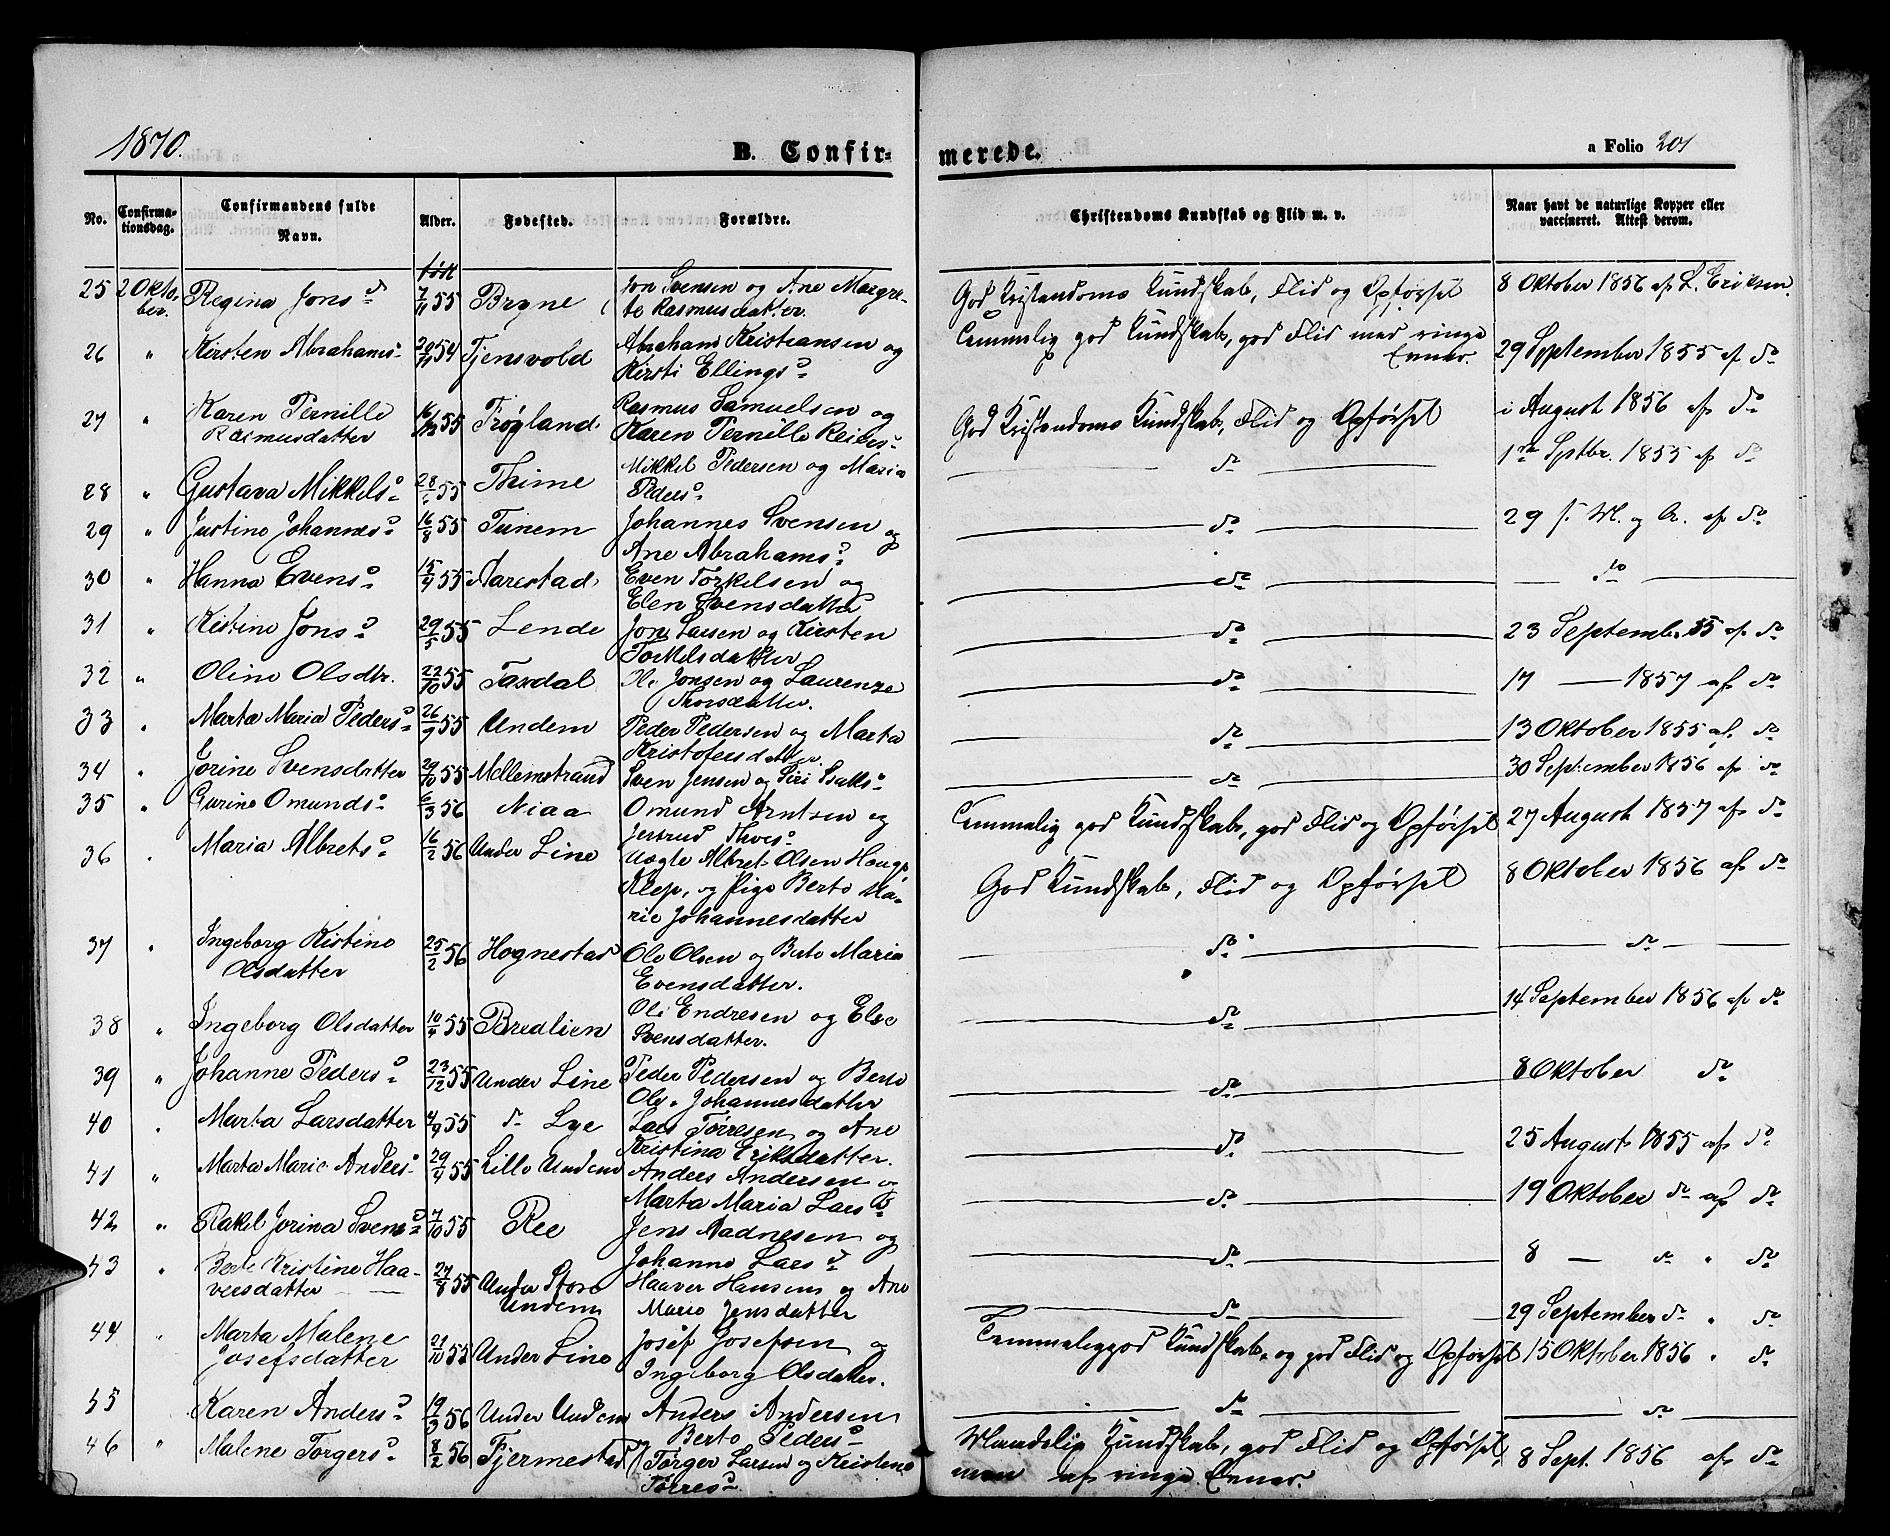 1870.
B. Confirmerede.
a Folio 201
No.
Confirmationsdag.
Confirmandens fulde Navn.
Alder.
Fødested.
Forældre.
Christendoms Kundskab og Flid m. v.
Naar havt de naturlige Kopper eller vaccineret. Attest derom.
født
25 2 Oktober. Regina Jons d 7/11 55 Bryne Jon Svensen og Ane Margrete Rasmusdatter. God Kristendoms Kundskab, Flid og Opførsel 8 Oktober 1856 af L. Eriksen.
26 " Kirsten Abrahams d 20/11 54 Tjensvold Abraham Kristiansen og Kirsti Ellings d Temmelig god Kundskab, god Flid med ringe Evner. 29 September 1855 af do
27 " Karen Pernille Rasmusdatter 16/12 55 Frøyland Rasmus Samuelsen og Karen Pernille Reiers d God Kristendoms Kundskab, Flid og Opførsel i August 1856 af do
28 " Gustava Mikkels d 28/ 55 Thime Mikkel Pedersen og Maria Peders d do 1ste Septbr. 1855 af do
29 " Justine Johannes d 16/8 55 Tunem Johannes Svensen og Ane Abrahams d do 29 s. M. og A. af do
30 " Hanna Evens d 15/9 55 Aarestad Even Torkelsen og Elen Svensdatter do do
31 " Kistine Jons d 29/5 55 Lende Jon Larsen og Kirsten Torkelsdatter do 23 Septemb. 55 af do
32 " Oline Olsdtr. 22/10 55 Taxdal Ole Jonsen og Laurenze Thorsdatter. do 17 — 1857 af do
33 " Marta Maria Peders d 26/9 55 Undem Peder Pedersen og Marta Kristofersdatter. do 13 Oktober 1855 af do
34 " Jorine Svensdatter 29/10 55 Mellemstrand Sven Jensen og Siri Isaks d do 30 September 1856 af do
35 " Gurine Omunds d 6/3 56 Niaa Omund Arntsen og Jertrud Thores d Temmelig god Kundskab, god Flid og Opførsel 27 August 1857 af do
36 " Maria Albrets d 16/2 56 Under Line Uægte Albret Olsen Hauge Klep, og Pige Berte Marie Johannesdatter God Kundskab, Flid og Opførsel 8 Oktober 1856 af do
37 " Ingeborg Kistine Olsdatter 25/2 56 Hognestad Ole Olsen og Berte Maria Evensdatter. do do
38 " Ingeborg Olsdatter 10/9 55 Bredlien Ole Endresen og Else Svensdatter. do 14 September 1856 af do
39 " Johanne Peders d 23/12 55 Under Line Peder Pedersen og Berte Johannesdatter do 8 Oktober do
40 " Marta Larsdatter 4/9 55 do Lye Lars Tørresen og Ane Kristina Eriksdatter. do 25 August 1855 af do
41 " Marta Marie Anders d 29/9 55 Lille Undem Anders Andersen og Marta Maria Lars D do 19 Oktober do af do
42 " Rakel Jorina Svens d 7/10 55 Ree Jens Aadnesen og Johanne Lars d do 8 — do " do
43 " Berte Kristine Haaversdatter 27/8 55 Under Store Undem Haaver Hansen og Ane Marie Jensdatter do 29 September do " do
44 " Marta Malene Josefsdatter 21/10 55 Under Line Josef Josefsen og Ingeborg Olsdatter. Temmelig god Kundskab, og god Flid og Opførsel 15 Oktober 1856 " do
45 Karen Anders d 19/3 56 Under Undem Anders Andersen Berte Peders d do do
46 " Malene Torgers d 8/2 56 Fjermestad Torger Larsen og Kristene Tørres d Maadelig Kundskab, god Flid og Opførsel, men af ringe Evner. 8 Sept. 1856 af do